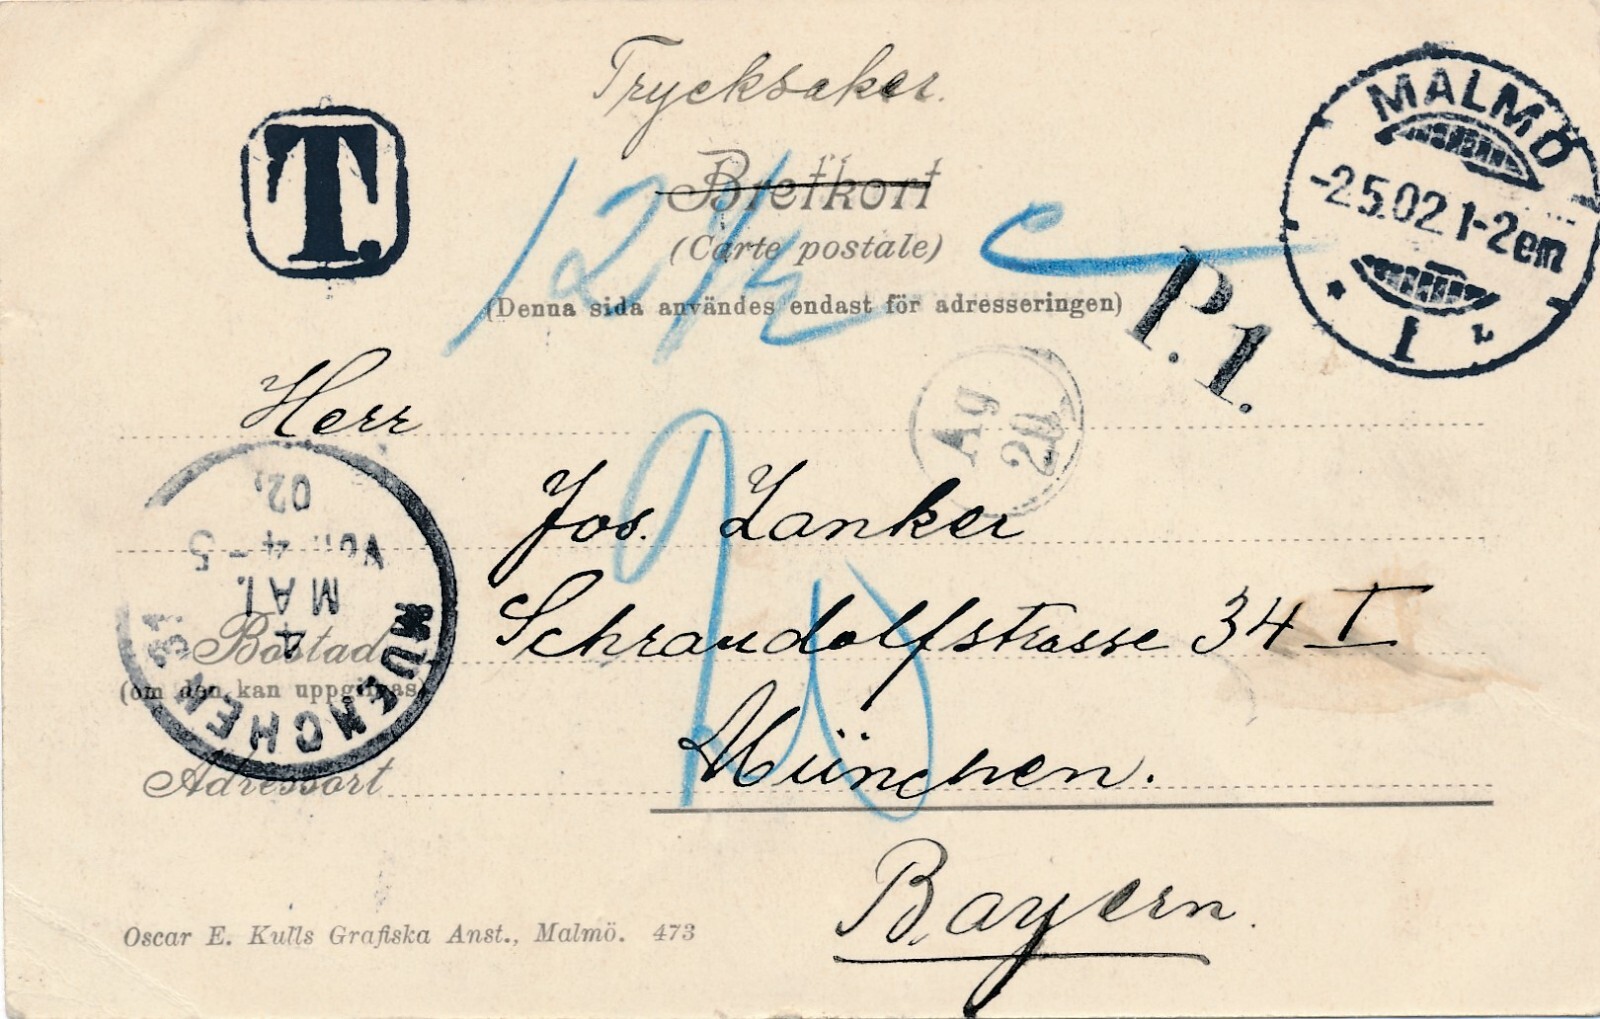 Trycksaker.
T.
MALMÖ
-2.5.02 1-2em
1 L
Brefkort
(Carte postale)
12 1/2 c
(Denna sida användes endast för adresseringen)
P.1.
Ag
20
Herr
Jos. Zanker
Schraudolfstrasse 34 I
München.
Bayern.
MUENCHEN
4
MAI.
Vor. 4-5
02.
Bostad
(om den kan uppgifvas)
Adressort
20
Oscar E. Kulls Grafiska Anst., Malmö. 473